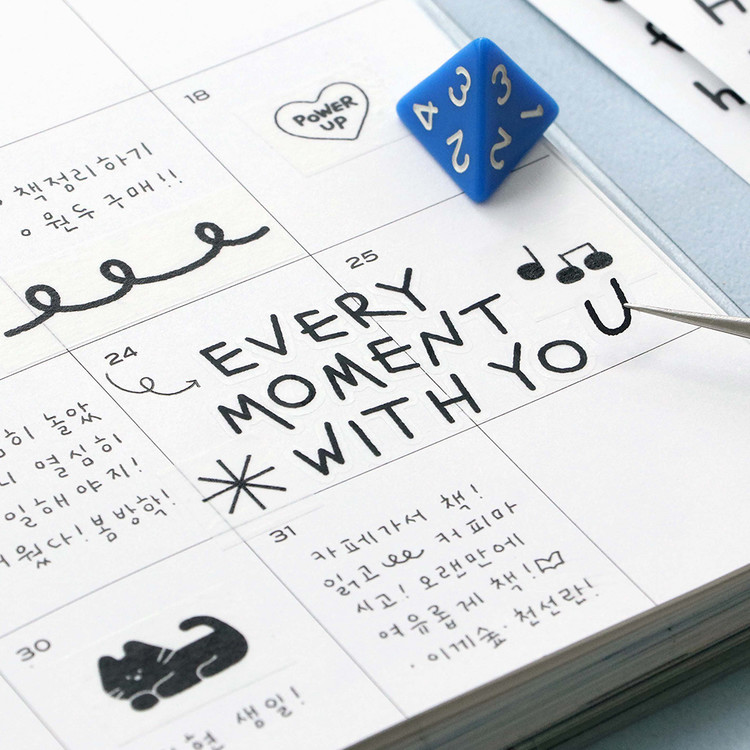 18
POWER
UP
책정리하기
원두 구매!!
3 3
4 1
2 2
25
24
EVERY
MOMENT
WITH YOU
놀았
열심히
일해야지!
봄방학!
31
카페가서 책!
읽고 커피마
시고! 오랜만에
여유롭게 책!
·이끼숲·천선란!
30
생일!
h